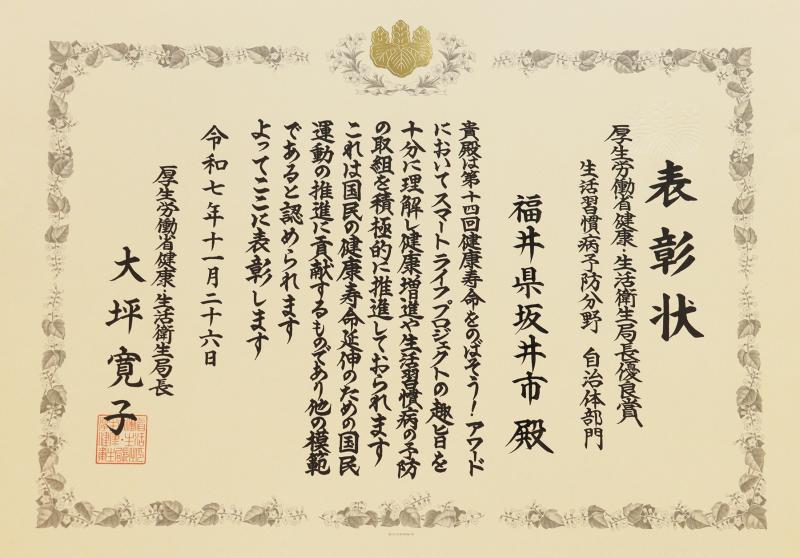 表彰状
厚生労働省健康・生活衛生局長優良賞
生活習慣病予防分野 自治体部門
福井県坂井市 殿
貴殿は第十四回健康寿命をのばそう!アワード
においてスマートライフプロジェクトの趣旨を
十分に理解し健康増進や生活習慣病の予防
の取組を積極的に推進しておられます
これは国民の健康寿命延伸のための国民
運動の推進に貢献するものであり他の模範
であると認められます
よってここに表彰します
令和七年十一月二十六日
厚生労働省健康・生活衛生局長
大坪寛子